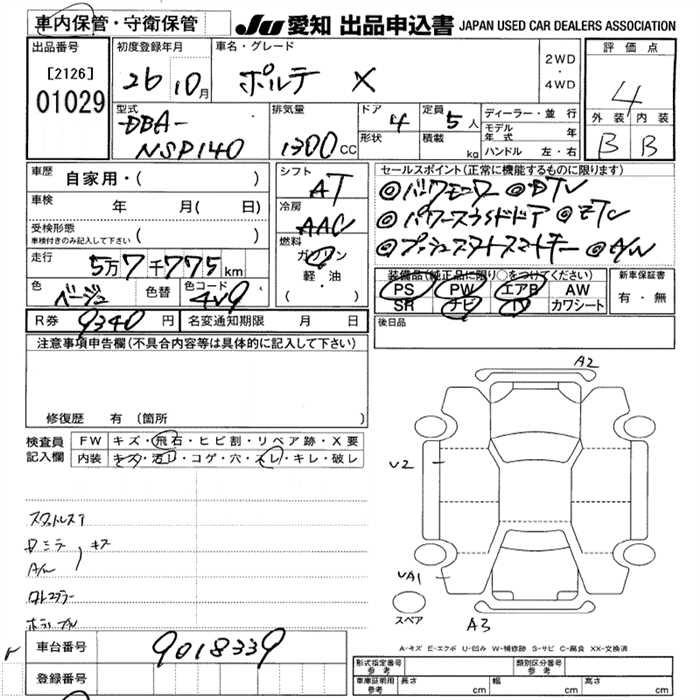 車内保管・守衛保管
JU 愛知 出品申込書 JAPAN USED CAR DEALERS ASSOCIATION
出品番号 初度登録年月 車名・グレード 評価点
[2126]
01029
26 10月 ポルテ X 2WD・4WD 4
型式 排気量 ドア 定員 ディーラー・並行 外装 内装
DBA-
NSP140 1300CC 4 5人 モデル年式 年 B B
形状 積載 kg ハンドル 左・右
車歴 自家用・( )
シフト AT
セールスポイント(正常に機能するものに限ります)
車検 年 月(日)
冷房 AAC
◎パワースライドドア ◎ETC
受検形態 車検付きのみ記入して下さい ( )
燃料 ガソリン 軽・油
◎プッシュスタートスマートキー ◎A/W
走行 5万7千775km
装備品(純正品に限り○をつけてください) 新車保証書
色 ベージュ 色替 色コード 4V9
PS PW エアB AW 有・無
SR ナビ TV カワシート
R券 9340円 名変通知期限 月 日
後日品
注意事項申告欄(不具合内容等は具体的に記入して下さい)
修復歴 有 (箇所 )
検査員記入欄 FW キズ・飛石・ヒビ割・リペア跡・X要
内装 キズ・汚レ・コゲ・穴・スレ・キレ・破レ
A2
U2
UA1
A3
スペア
A/W
キズ
A-キズ E-エクボ U-凹み W-補修跡 S-サビ C-腐食 XX-交換済
車台番号 9018339
登録番号
形式指定番号 参考 類別区分番号 参考
車庫証明用 参考 長さ cm 幅 cm 高さ cm